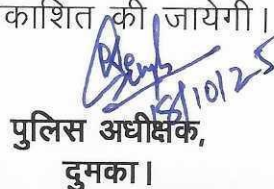 काशित की जायेगी।
18/10/25
पुलिस अधीक्षक,
दुमका।